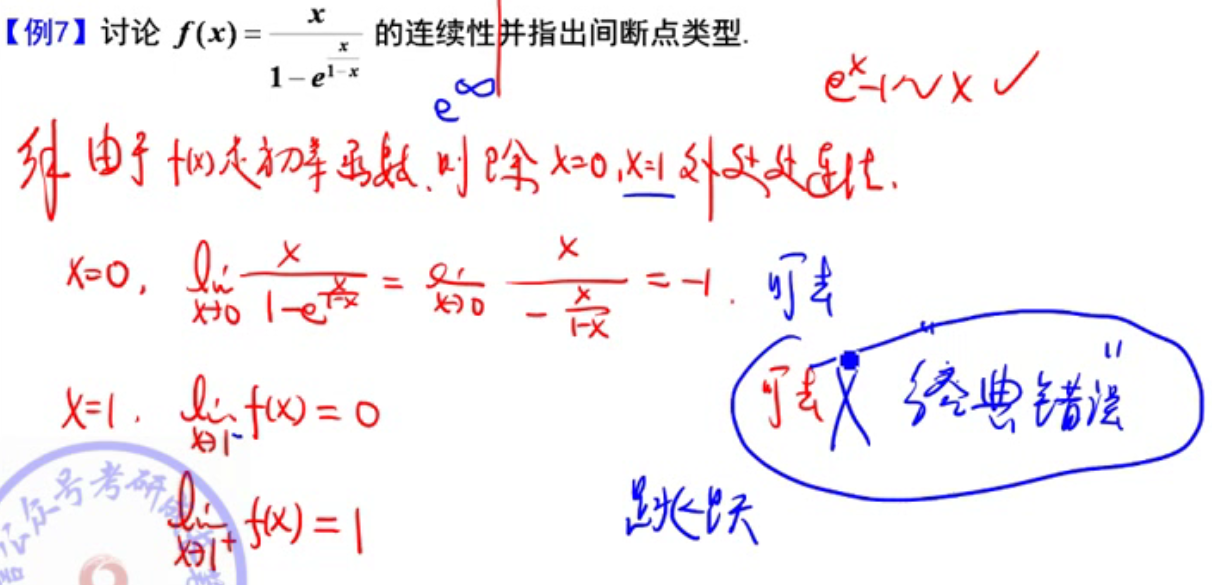 【例7】讨论 f(x) = x / (1 - e^{x/(1-x)}) 的连续性并指出间断点类型.
e^x-1~x ✓
e^∞
解 由于 f(x)为初等函数,则除 x=0,x=1 外处处连续.
x=0, lim_{x→0} x / (1-e^{x/(1-x)}) = lim_{x→0} x / (-x/(1-x)) = -1. 可去
可去 X "经典错误"
x=1. lim_{x→1^-} f(x) = 0
lim_{x→1^+} f(x) = 1
跳跃
号考研